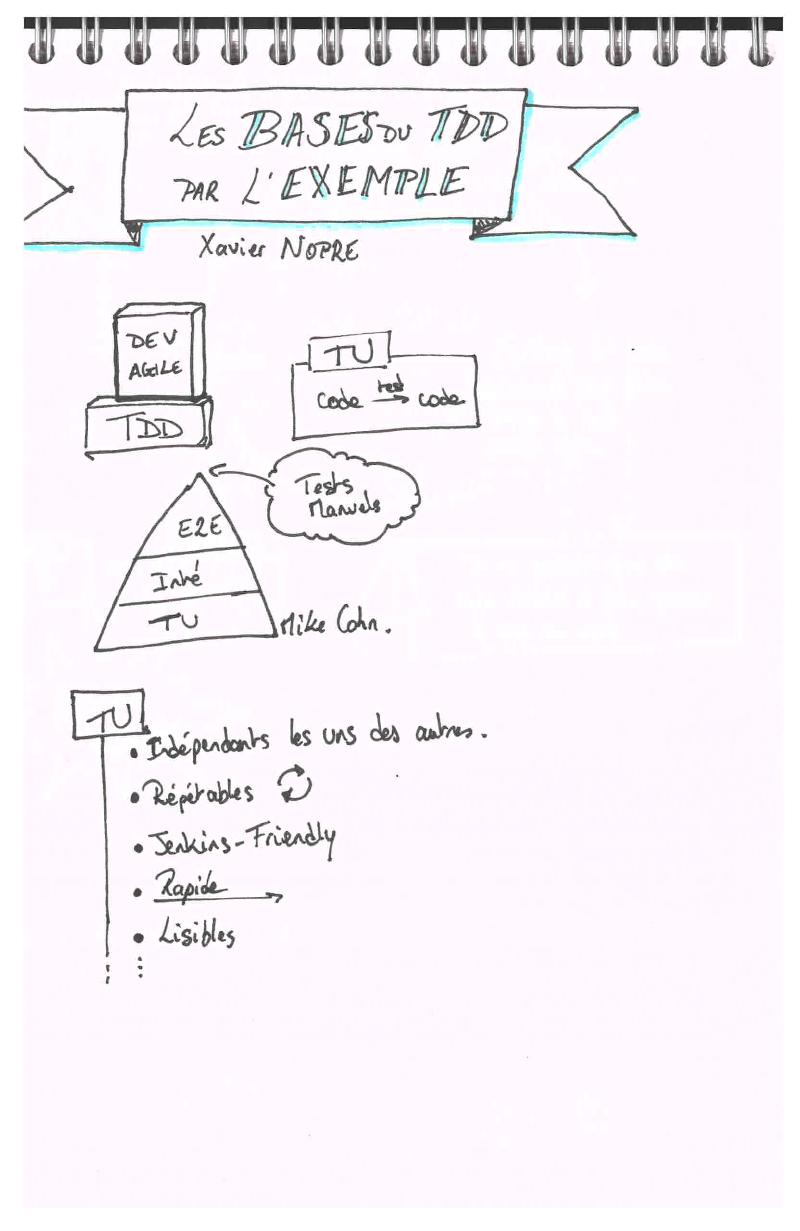 LES BASES DU TDD
PAR L'EXEMPLE
Xavier NOPRE
DEV
AGILE
TDD
TU
Code test code
Tests
Manuels
E2E
Inté
TU
Mike Cohn.
TU
• Indépendants les uns des autres.
• Répétables
• Jenkins-Friendly
• Rapide
• Lisibles